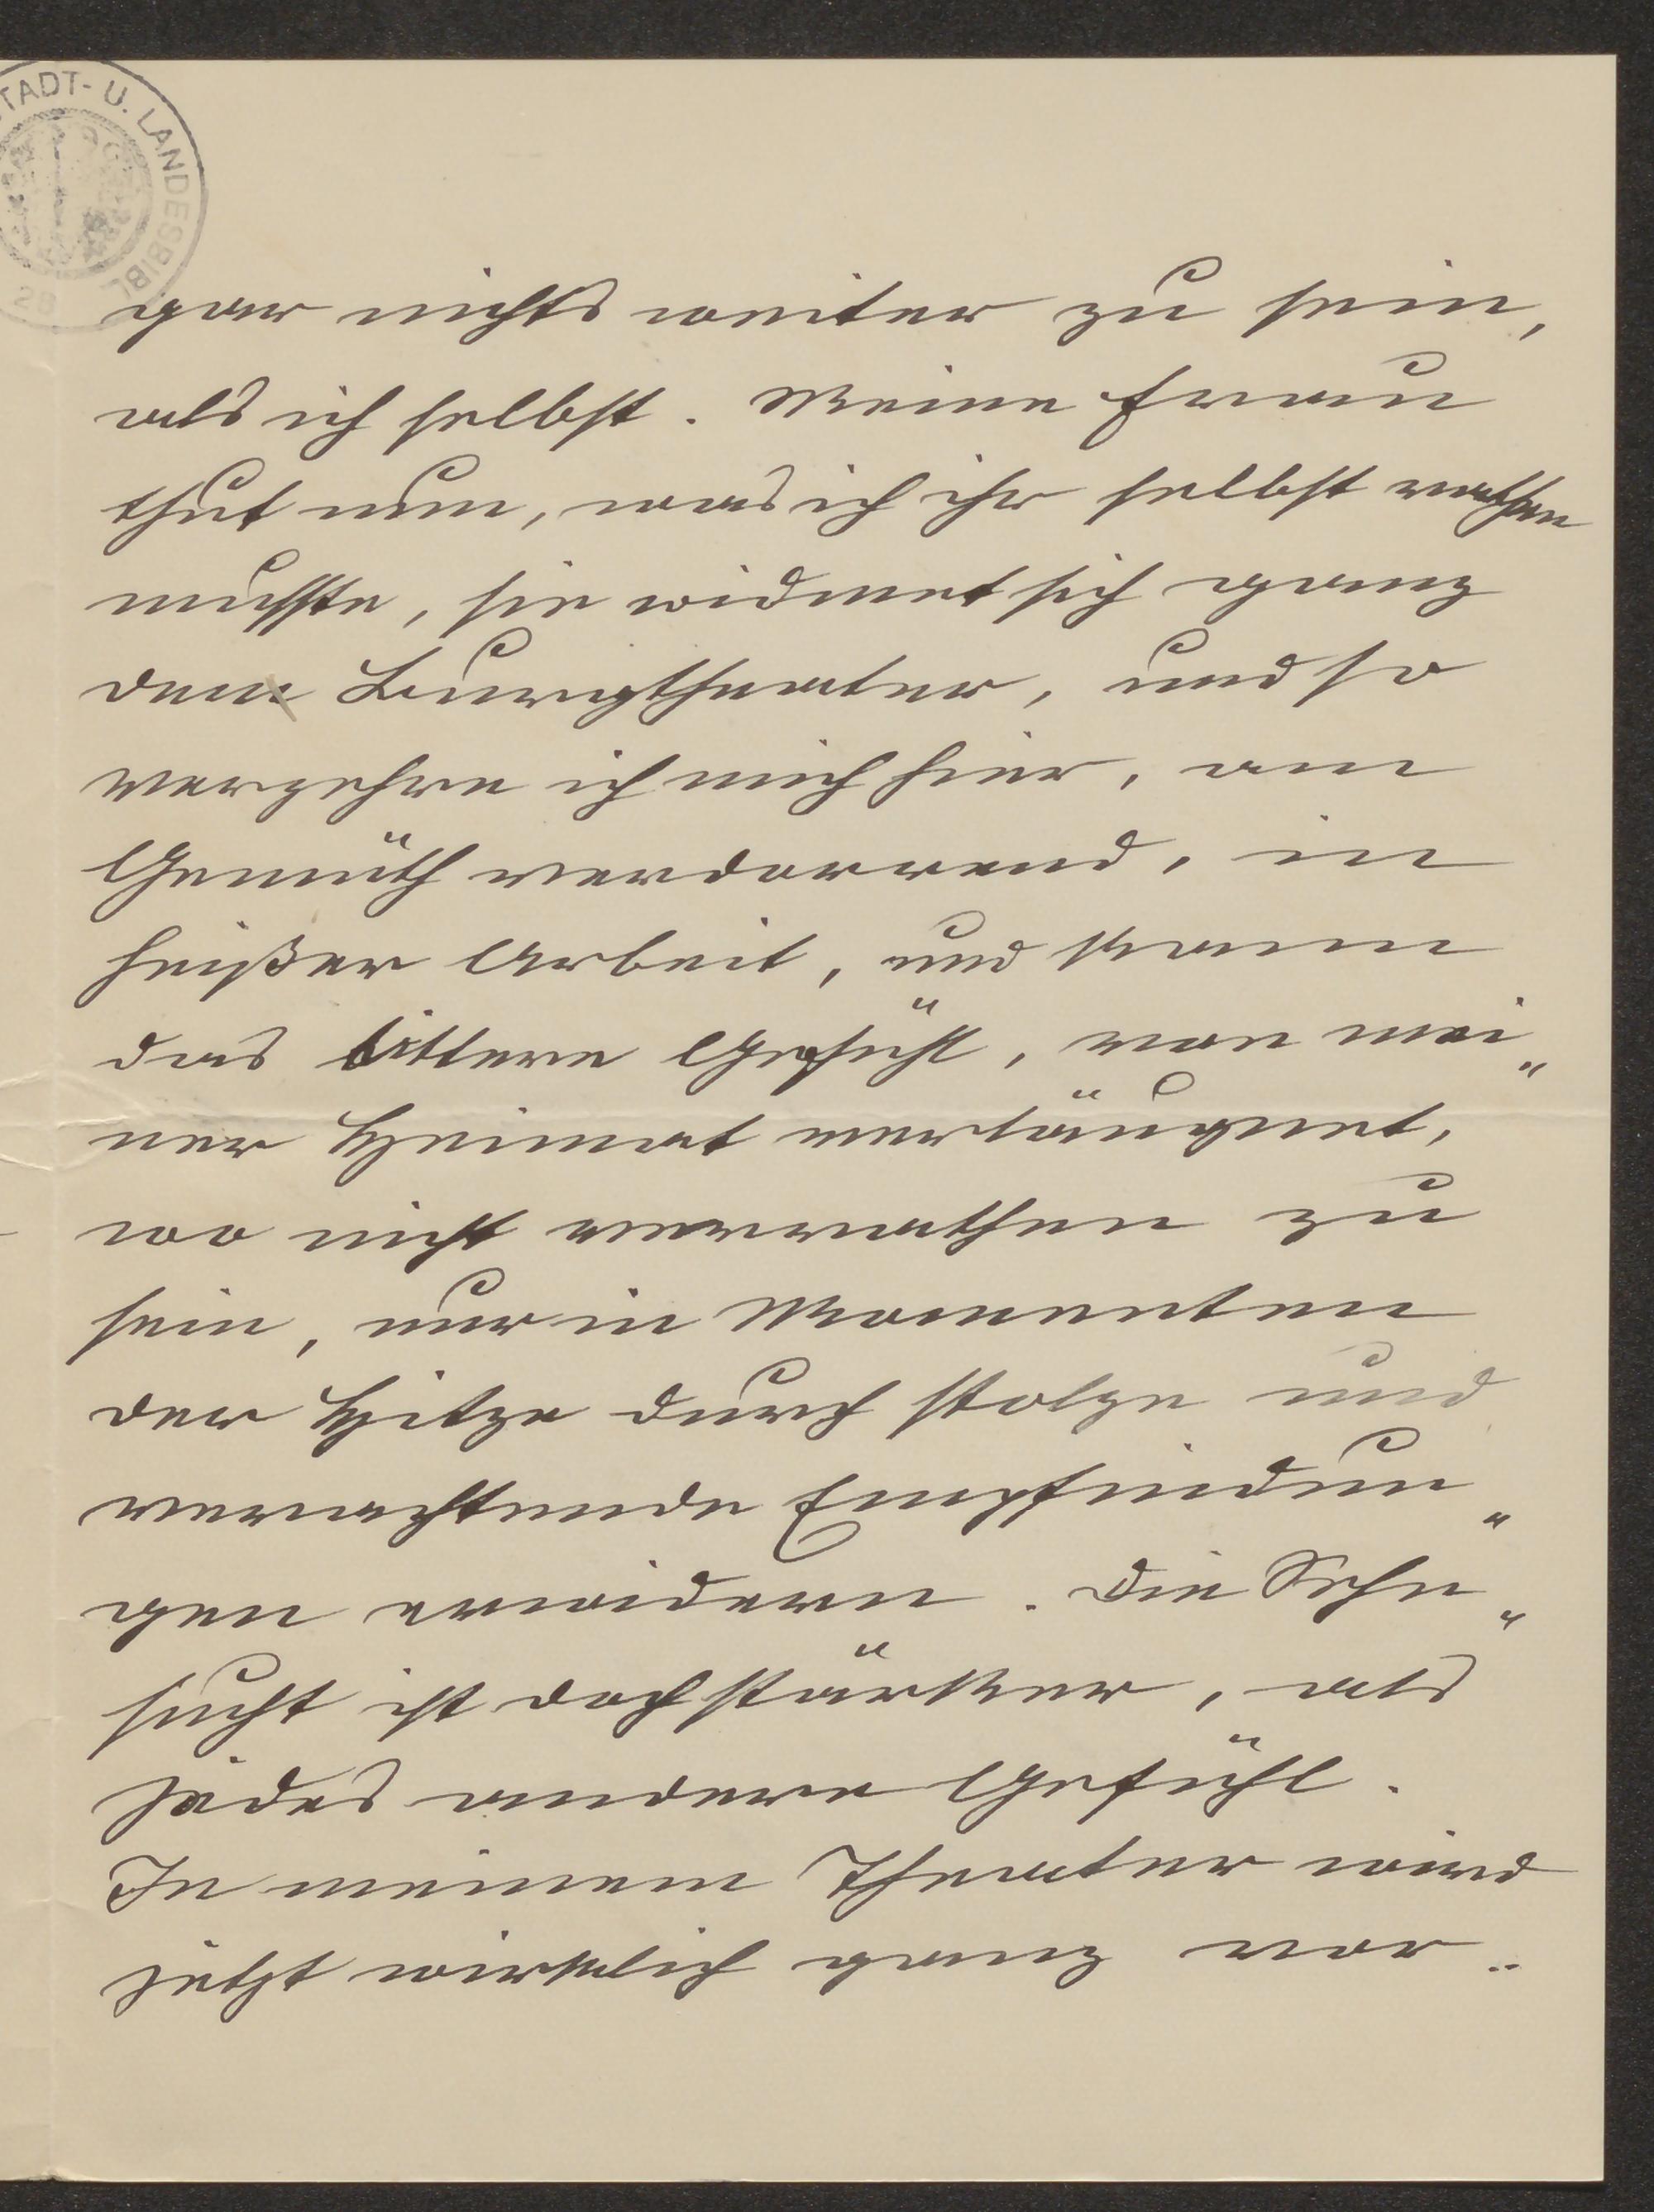 STADT- U. LANDESBIBL
28
gar nichts weiter zu sein,
als ich selbst. Meine Frau
thut nun, was ich ihr selbst rathen
musste, sie widmet sich ganz
dem Burgtheater, und so
verzehre ich mich hier, am
Gemüth verdorrend, in
heißer Arbeit, und kann
das bittere Gefühl, von mei„
ner Heimat verläugnet,
wo nicht verrathen zu
sein, nur in Momenten
der Hitze durch stolze und
verachtende Empfindun„
gen erwidern. Die Sehn„
sucht ist doch stärker, als
jedes andere Gefühl.
In meinem Theater wird
jetzt wirklich ganz vor„